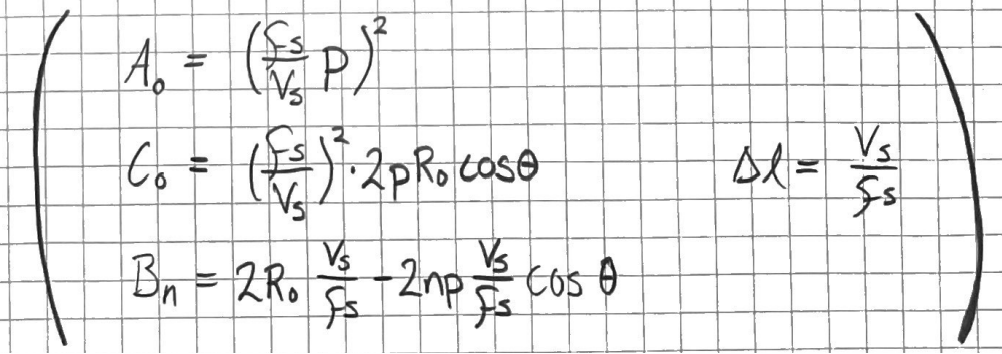 A₀ = (fs/Vs p)²
C₀ = (fs/Vs)² · 2pR₀ cosθ    Δl = Vs/fs
Bn = 2R₀ Vs/fs - 2np Vs/fs cos θ